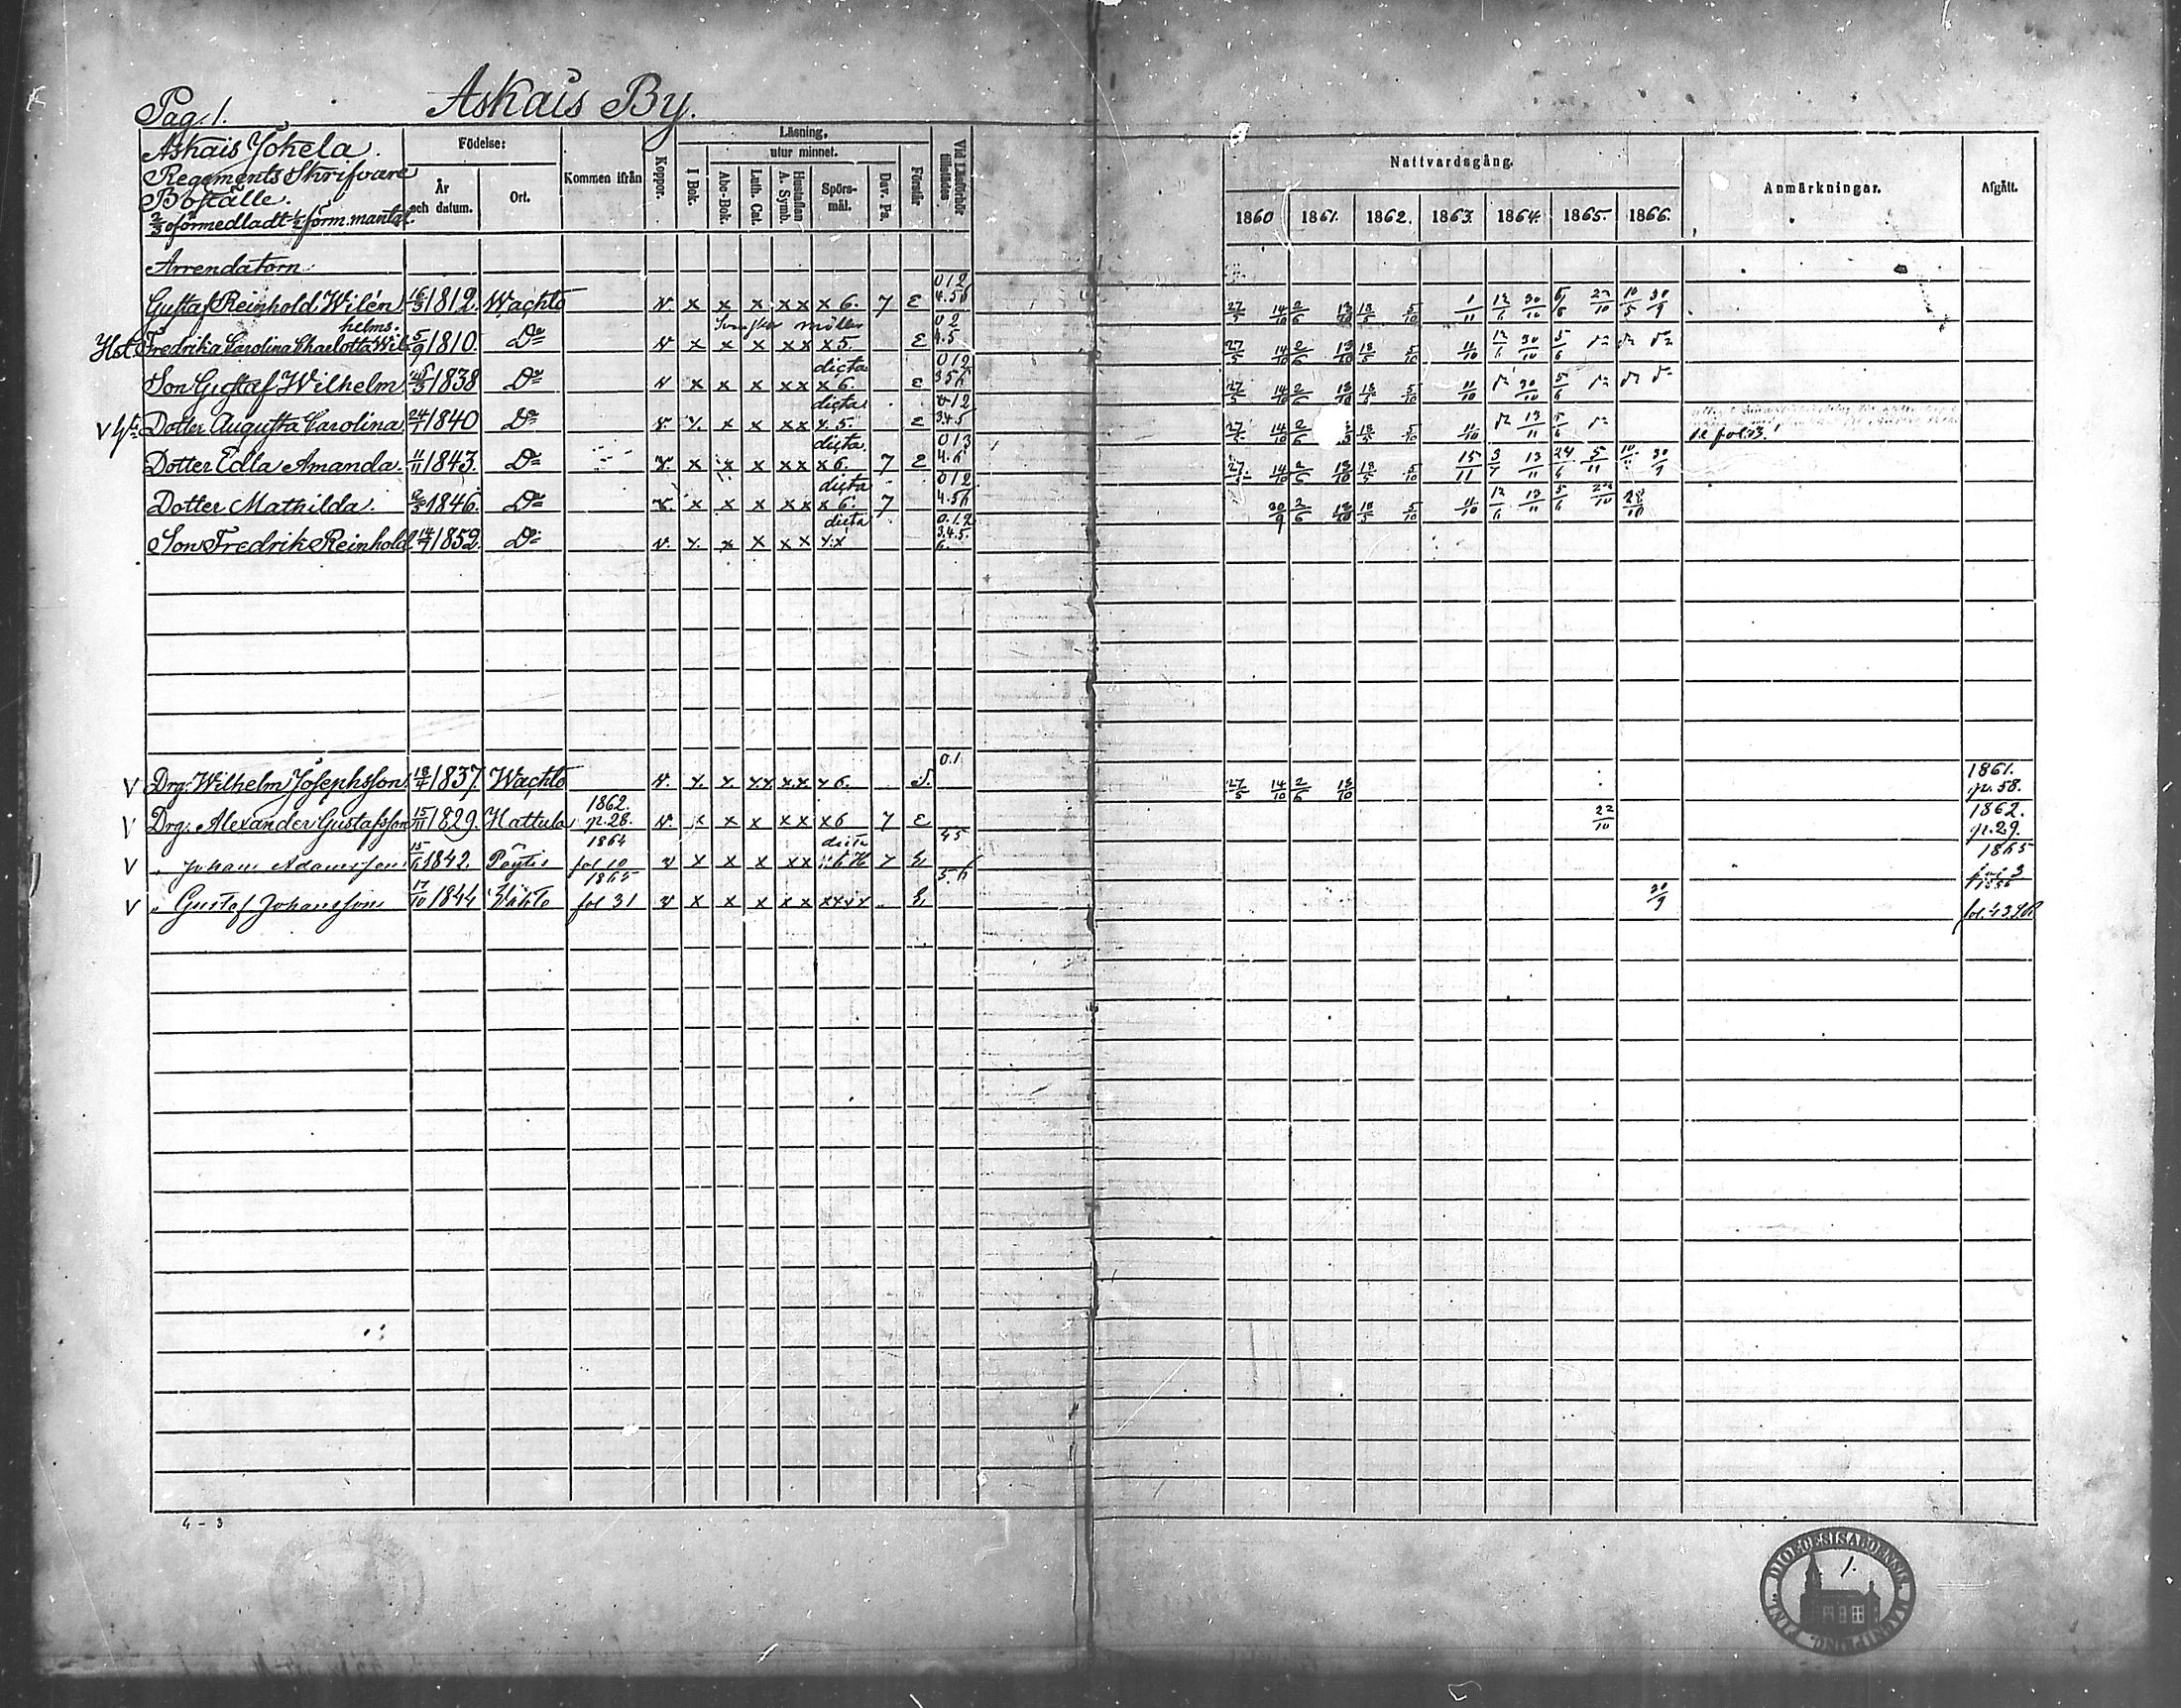 Pag. 1. Askais By.
Askais Jokela.
Regements Skrifvare
Boställe.
2/3 oförmedladt 1/2 förm. mantal.
Födelse:
År och datum.
Ort.
Kommen ifrån
Koppor.
Läsning,
utur minnet.
I Bok.
Abc-Bok.
Luth. Cat.
Hustaflan A. Symb.
Spörs-mål.
Dav. Ps.
Förstår
Vid Läsförhör tillstädes
Nattvardsgång.
1860 1861. 1862. 1863. 1864. 1865. 1866.
Anmärkningar.
Afgått.
Arrendatorn
Gustaf Reinhold Wilén. 16/3 1812. Wachto v. x x x x x x 6. 7 ε 0 1 2 4. 5 6 27/5 14/10 2/6 13/10 18/5 5/10 1/11 12/6 30/10 5/6 22/10 10/5 30/9
helms.
Hst. Fredrika Carolina Charlotta Wil 5/9 1810. Do v x x x x x x 5. ε 0 2 4. 5 27/5 14/10 2/6 13/10 18/5 5/10 11/10 12/6 30/10 5/6
Son Gustaf Wilhelm 1838 Do dicta v x x x x x x 6. ε 0 1 2 3 5 6 27/5 14/10 2/6 13/10 18/5 5/10 11/10 30/10 5/6
v Dotter Augusta Carolina. 24/7 1840 Do dicta v x. x x x x x. 5. ε 0 1 2 3. 4. 5 27/5 14/10 2/6 18/5 5/10 11/10 13/11 5/6
Dotter Edla Amanda. 11/11 1843. Do dicta v. x x x x x x 6. 7 ε 0 1 3 4. 6 27/5 14/10 2/6 13/10 18/5 5/10 15/11 3/7 13/11 24/6 5/11 30/9
Dotter Mathilda. 1846. Do dicta v. x x x x x x 6. 7 0 1 2 4. 5 6 30/9 2/6 13/10 18/5 5/10 11/10 12/6 13/11 5/6 22/10 28/10
Son Fredrik Reinhold. 14/7 1852. Do dicta v. x. x x x x x. x 0. 1. 2 3. 4. 5. 6.
v Drg: Wilhelm Josephsson. 18/4 1837. Wachto v. x. x. x. x x. x x 6. 0. 1 27/5 14/10 2/6 13/10 1861. p. 58.
v Drg: Alexander Gustafsson 15/11 1829. Hattula 1862. p. 28. v. x x x x x x 6 7 ε 22/10 1862. p. 29.
v " Johan Adamsson 15/6 1842. Pöytis 1864 fol 10 dicta v x x x x x 7 4 5 1865
v " Gustaf Johansson 17/10 1844 Wahto 1865 fol 31 v x x x x x x x x x 5. 6 30/9
4 - 3
1.